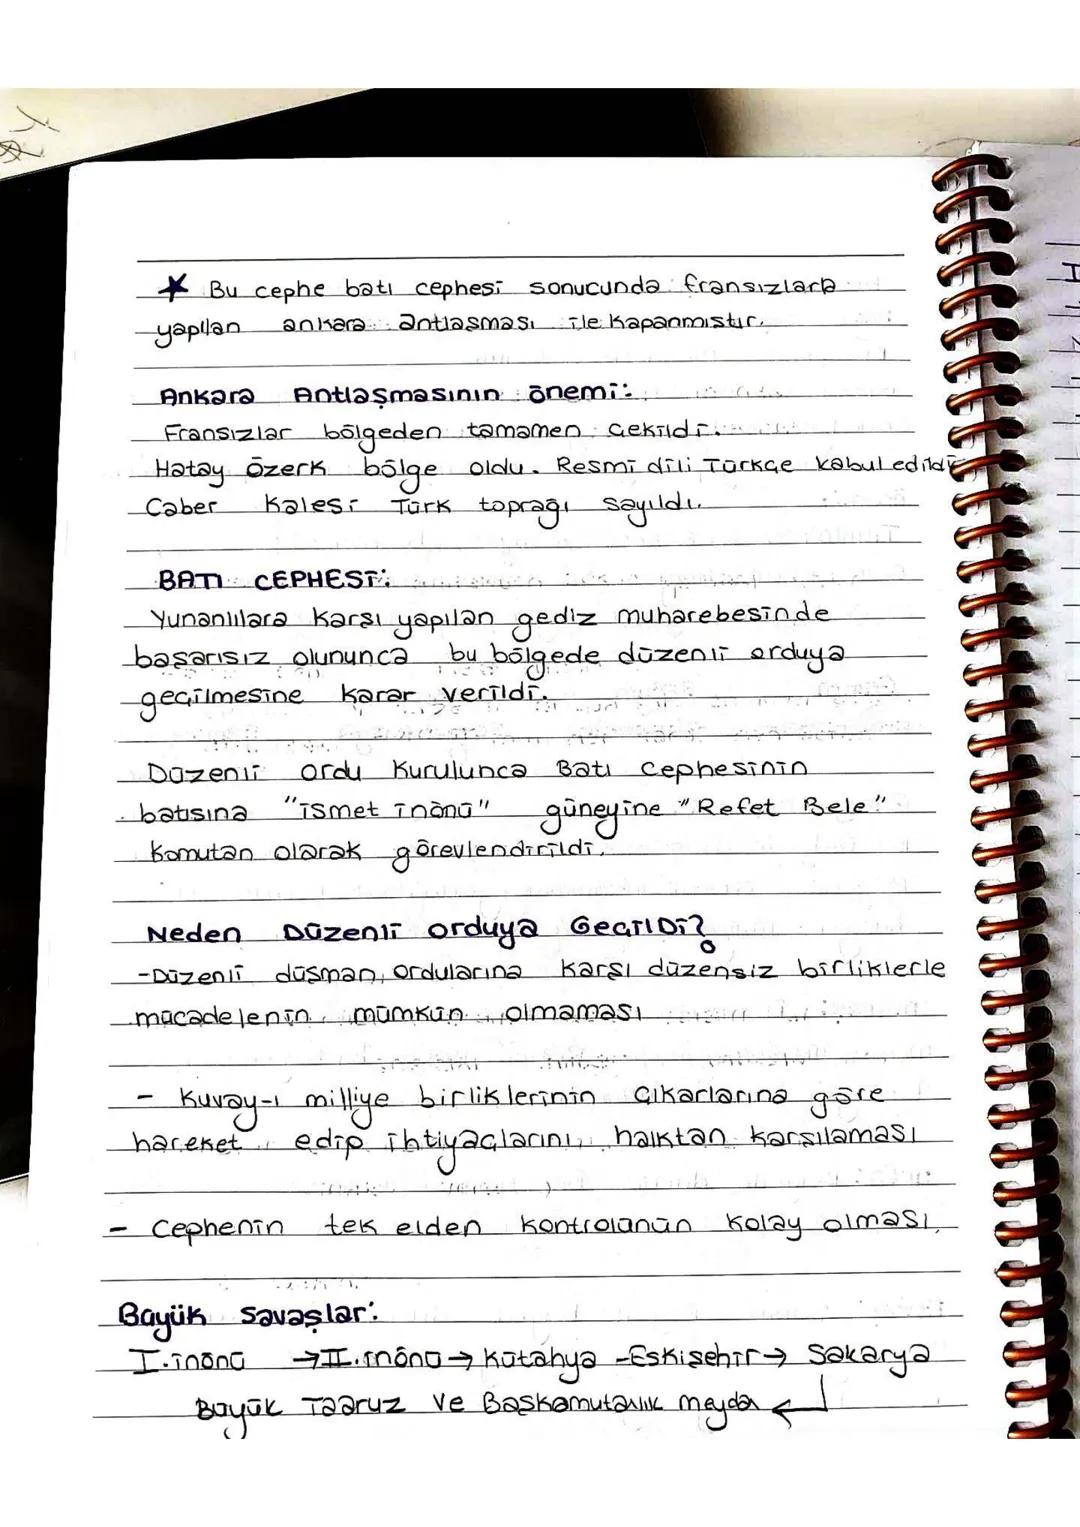 * Bu cephe batı cephesi sonucunda fransızlarla
yapılan ankara antlasması ile kapanmıstır.
Ankara Antlaşmasının önemi:
Fransızlar bölgeden tamamen çekildi.
Hatay Özerk bölge oldu. Resmi dili Türkçe kabul edildi
Caber Kalesi Türk toprağı sayıldı.
BATI CEPHESİ:
Yunanlılara karşı yapılan gediz muharebesinde
başarısız olununca bu bölgede düzenli orduya
geçilmesine karar verildi.
Düzenli ordu kurulunca Batı Cephesinin
batısına "ismet inönü" güneyine "Refet Bele"
komutan olarak görevlendirildi.
Neden Düzenli orduya Geçildi?
-Düzenli düşman ordularına karşı düzensiz birliklerle
mücadelenin mümkün olmaması
- Kuvay-ı milliye birliklerinin çıkarlarına göre
hareket edip ihtiyaçlarını halktan karsılaması
- Cephenin tek elden kontrolünün kolay olması.
Büyük savaşlar:
I.inönü →II.inönü→ Kütahya -Eskişehir→ Sakarya
Büyük Taaruz ve Başkomutanlık meydan ←